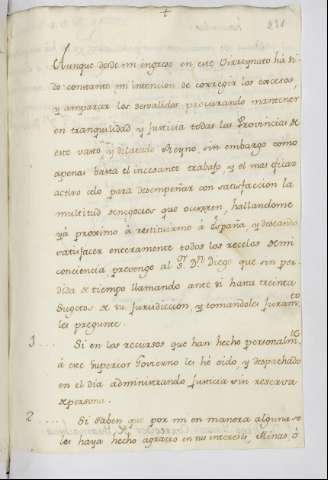 +
231
Aunque desde mi ingreso en este Virreynato há si
do constante mi intencion de corregir los excesos,
y amparar los desvalidos, procurando mantener
en tranquilidad y Justicia todas las Provincias de
este vasto, y dilatado Reyno, sin embargo como
apenas basta el incesante trabajo, y el mas eficaz
activo celo para desempeñar con satisfaccion la
multitud de negocios que ocurren, hallandome
yá proximo á restituirme á España, y deseando
satisfacer enteramente todos los recelos de mi
conciencia, prevengo al Sr. Dn. Diego que sin per
dida de tiempo llamando ante si hasta treinta
Sugetos de su Jurisdiccion, y tomandoles Juramto
les pregunte.
1.... Si en los recursos que han hecho personalmte
á este Superior Govierno les hé oido, y despachado
en el dia administrando Justicia sin reserva
de persona.
2.... Si saben que por mi en manera alguna se
les haya hecho agravio en sus intereses, Minas, ó